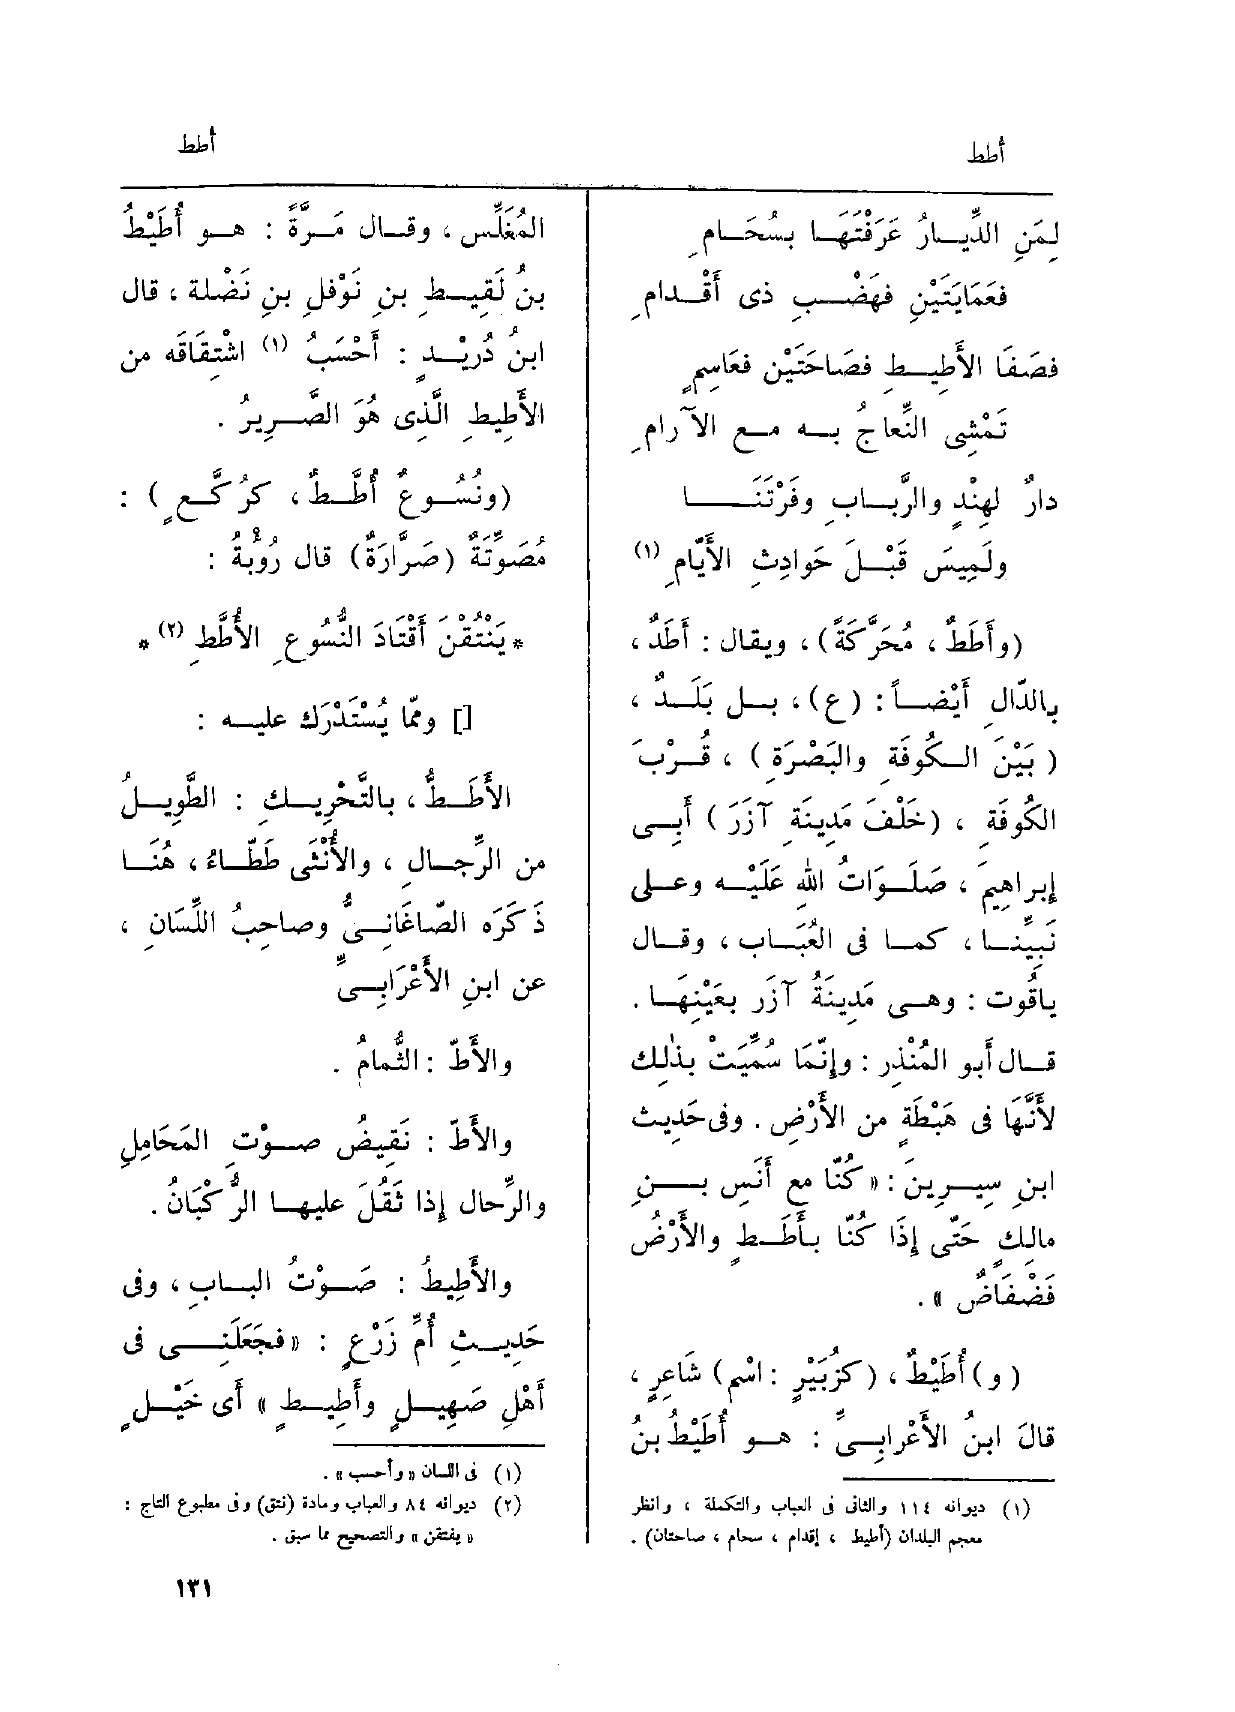 أطط
أطط
لِمَنِ الدِّيــارُ عَرَفْتَهَــا بسُحَــامِ
فعَمَايَتَيْنِ فهَضْــبِ ذى أَقْــدامِ
فصَفَا الأَطِيــطِ فصَاحَتَيْنِ فعَاسِمٍ
تَمْشِى النِّعاجُ بــه مــع الآرامِ
دارٌ لهِنْدٍ والرَّبــابِ وفَرْتَنَــا
ولَمِيسَ قَبْــلَ حَوادِثِ الأَيَّامِ (١)
(وأَطَطٌ ، مُحَرَّكَةً) ، ويقال : أَطَدٌ ،
بالدّالِ أَيْضــاً : (ع) ، بــل بَلَــدٌ ،
( بَيْنَ الــكُوفَةِ والبَصْرَةِ ) ، قُــرْبَ
الكُوفَةِ ، (خَلْفَ مَدِينَةِ آزَرَ ) أَبِــى
إبراهِيمَ ، صَلَــوَاتُ الله عَلَيْــه وعــلى
نَبِيِّنــا ، كمــا فى العُبَــاب ، وقــال
ياقُوت : وهــى مَدِينَةُ آزَر بعَيْنِهَــا .
قــال أَبو المُنْذِر : وإِنَّمَا سُمِّيَتْ بذٰلِك
لأَنَّهَا فى هَبْطَةٍ من الأَرْضِ . وفى حَدِيث
ابنِ سِيــرِينَ : « كُنَّا مع أَنَسِ بــنِ
مالِكٍ حَتَّى إِذَا كُنَّا بــأَطَــطٍ والأَرْضُ
فَضْفَاضٌ » .
( و) أُطَيْطٌ ، (كزُبَيْرٍ : اسْم) شَاعِرٍ ،
قالَ ابنُ الأَعْرابِــىِّ : هــو أُطَيْطُ بنُ
(١) ديوانه ١١٤ والثانى فى العباب والتكملة ، وانظر
معجم البلدان (أطيط ، إقدام ، سحام ، صاحتان) .
المُغَلِّس ، وقــال مَــرَّةً : هــو أُطَيْطُ
بنُ لَقِيــطِ بنِ نَوْفَلِ بنِ نَضْلة ، قال
ابنُ دُرَيْــدٍ : أَحْسَبُ (١) اشْتِقَاقَه من
الأَطِيطِ الَّذِى هُوَ الصَّــرِيرُ .
(ونُسُــوعٌ أُطَّــطٌ ، كرُكَّــعٍ ) :
مُصَوِّتَةٌ (صَرَّارَةٌ) قال رُؤْبَةُ :
* يَنْتُقْنَ أَقْتَادَ النُّسُوعِ الأُطَّطِ (٢) *
[] وممّا يُسْتَدْرَك عليــه :
الأَطَــطُ ، بالتَّحْرِيــكِ : الطَّوِيــلُ
من الرِّجــال ، والأُنْثَى طَطّــاءُ ، هُنَــا
ذَكَرَه الصّاغَانِــىُّ وصاحِبُ اللِّسَانِ ،
عن ابنِ الأَعْرَابِــىِّ
والأَطّ : الثُّمامُ .
والأَطّ : نَقِيضُ صــوْتِ المَحَامِلِ
والرِّحال إذا ثَقُلَ عليهــا الرُّكْبَانُ .
والأَطِيطُ : صَــوْتُ البــابِ ، وفى
حَدِيــثِ أُمِّ زَرْعٍ : « فجَعَلَنِــى فى
أَهْلِ صَهِيــلٍ وأَطِيــطٍ » أَى خَيْــلٍ
(١) فى اللسان « وأحسب » .
(٢) ديوانه ٨٤ والعباب ومادة (نتق) وفى مطبوع التاج :
« يفتقن » والتصحيح مما سبق .
١٣١